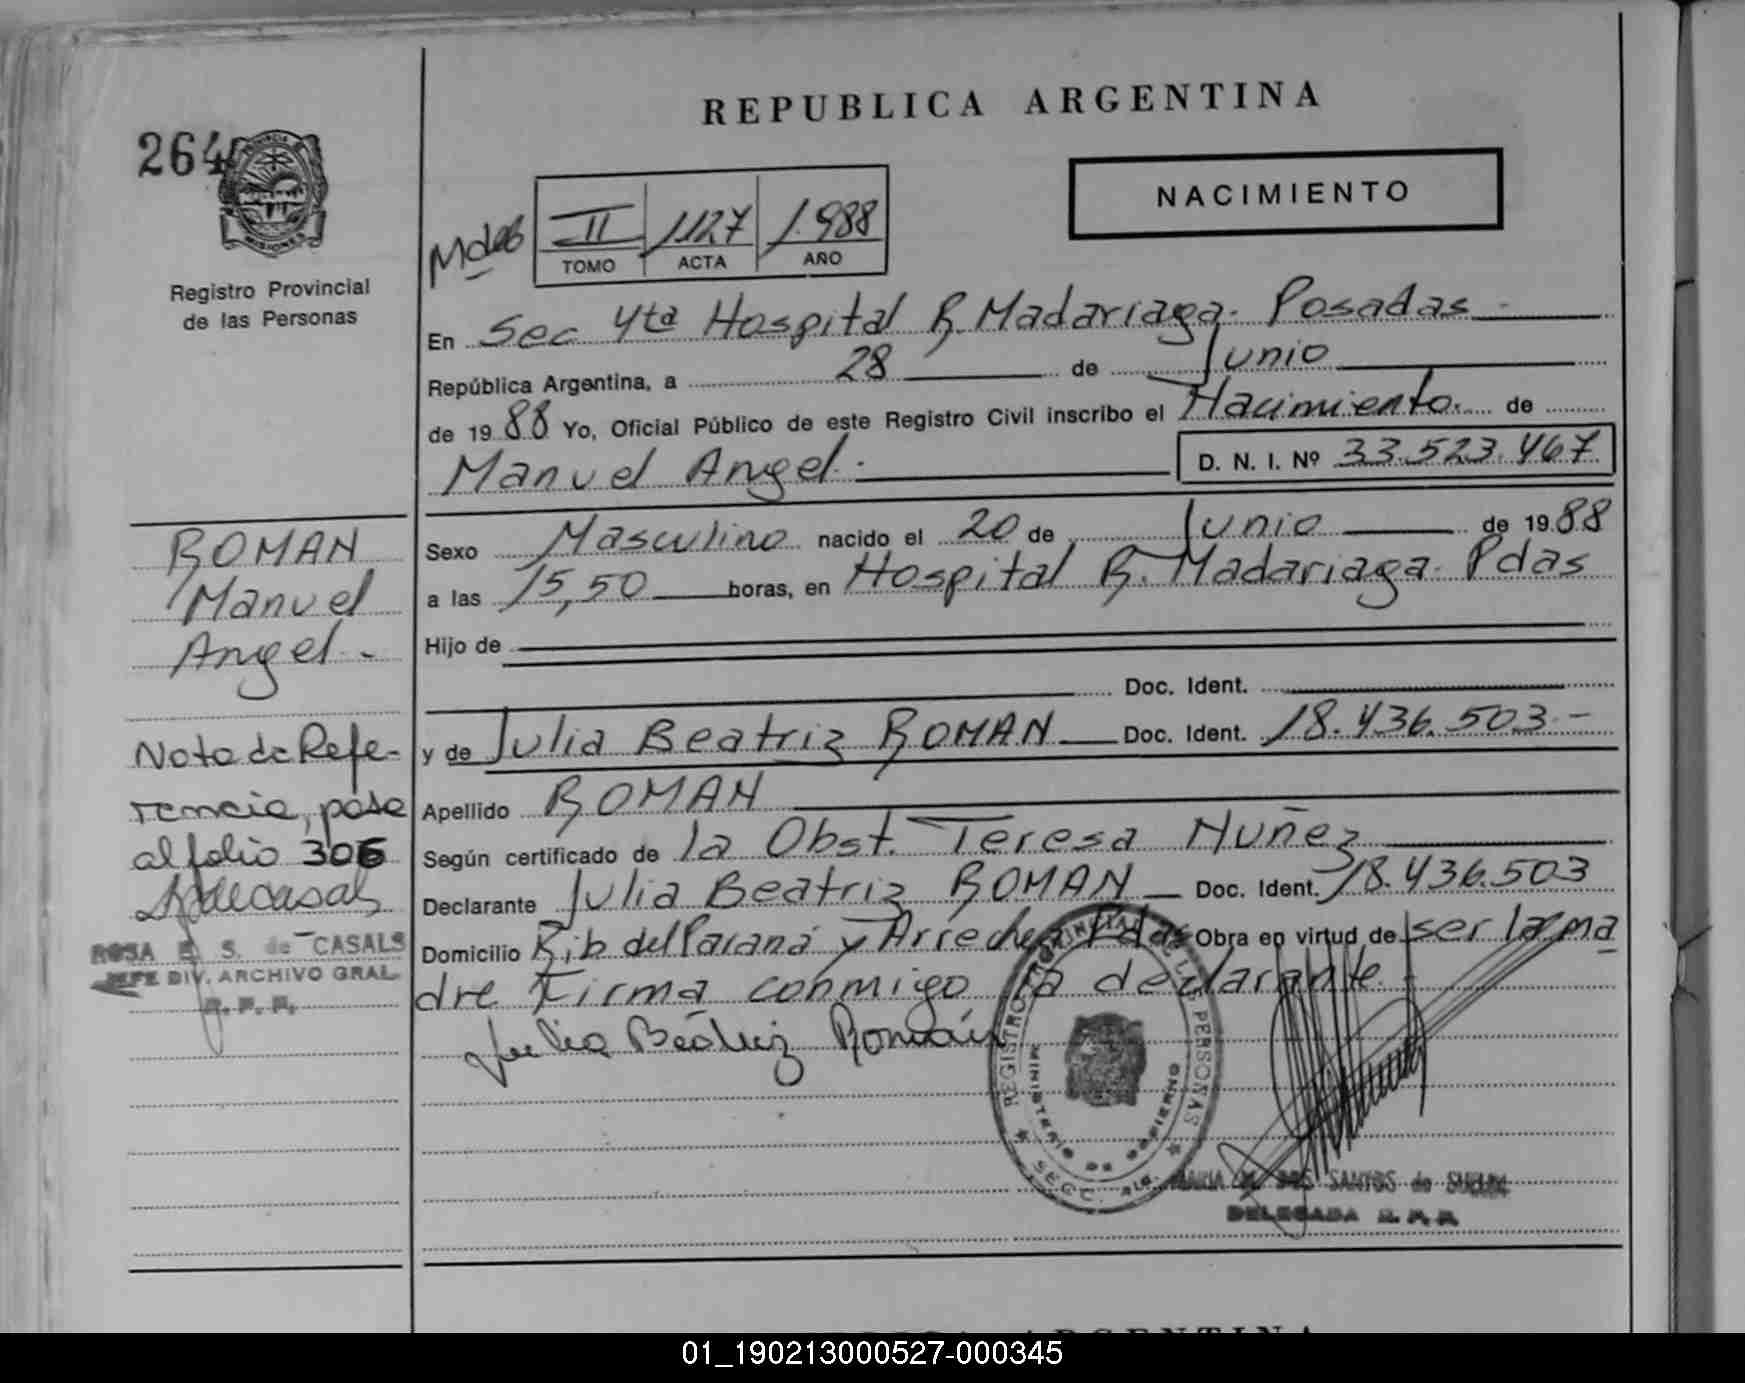 REPUBLICA ARGENTINA
264
PROVINCIA DE MISIONES
Registro Provincial
de las Personas
II 1127 1.988
TOMO ACTA AÑO
NACIMIENTO
En Sec 4ta Hospital R. Madariaga. Posadas
República Argentina, a 28 de Junio
de 19 88 Yo, Oficial Público de este Registro Civil inscribo el Nacimiento. de
Manuel Angel. D. N. I. Nº 33.523.467
Sexo Masculino nacido el 20 de Junio de 19 88
a las 15,50 horas, en Hospital R. Madariaga. Pdas
Hijo de
Doc. Ident.
y de Julia Beatriz ROMAN Doc. Ident. 18.436.503.-
Apellido ROMAN
Según certificado de la Obst. Teresa Nuñez
Declarante Julia Beatriz ROMAN Doc. Ident. 18.436.503
Domicilio Rib del Paraná y Arrechea Pdas Obra en virtud de ser la ma
dre Firma conmigo la declarante.
Julia Beatriz Román
ROMAN
Manuel
Angel.-
Nota de Refe-
rencia, pasa
al folio 306
ROSA E. S. de CASALS
JEFE DIV. ARCHIVO GRAL.
R. P. P.
REGISTRO PROVINCIAL DE LAS PERSONAS
MINISTERIO DE GOBIERNO
DOS SANTOS de
DELEGADA R. P. P.
ARGENTINA
01_190213000527-000345